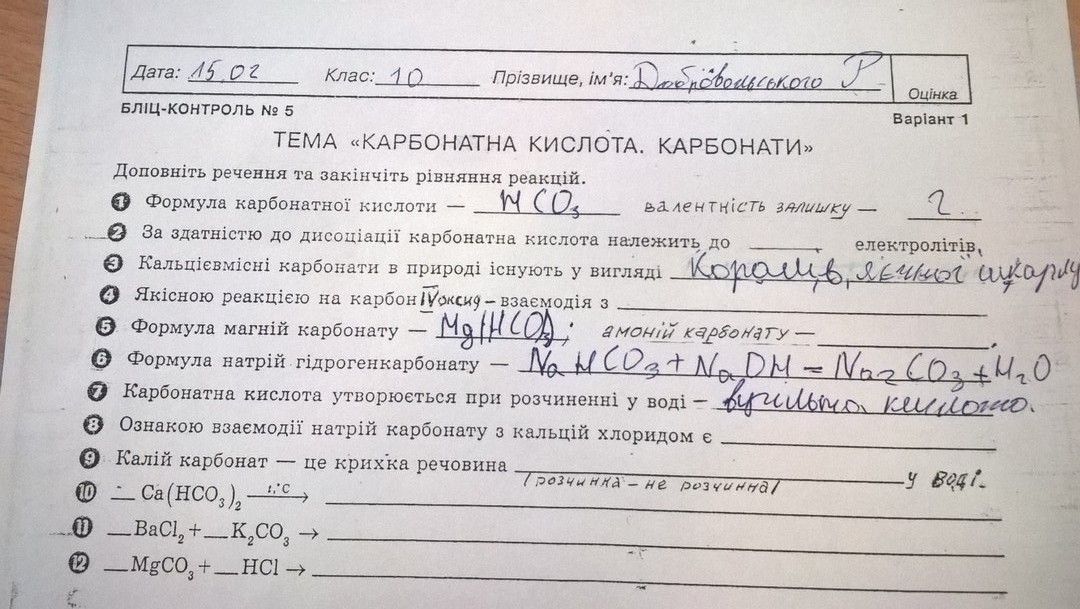 Дата: 15.02 Клас: 10 Прізвище, ім'я: Добровольського Р
Оцінка
БЛІЦ-КОНТРОЛЬ № 5
Варіант 1
ТЕМА «КАРБОНАТНА КИСЛОТА. КАРБОНАТИ»
Доповніть речення та закінчіть рівняння реакцій.
1 Формула карбонатної кислоти — HCO₃ валентність залишку — 2
2 За здатністю до дисоціації карбонатна кислота належить до ______ електролітів,
3 Кальцієвмісні карбонати в природі існують у вигляді Коралів, яєчної шкарлу
4 Якісною реакцією на карбон IV оксид – взаємодія з ______
5 Формула магній карбонату — Mg(HCO₃); амоній карбонату — ______.
6 Формула натрій гідрогенкарбонату — NaHCO₃ + NaOH = Na₂CO₃ + H₂O
7 Карбонатна кислота утворюється при розчиненні у воді – вугільна кислота.
8 Ознакою взаємодії натрій карбонату з кальцій хлоридом є ______
9 Калій карбонат — це крихка речовина ______ у воді.
/розчинна – не розчинна/
10 __ Ca(HCO₃)₂ t,°C → ______
11 __BaCl₂ + __K₂CO₃ → ______
12 __MgCO₃ + __HCl → ______